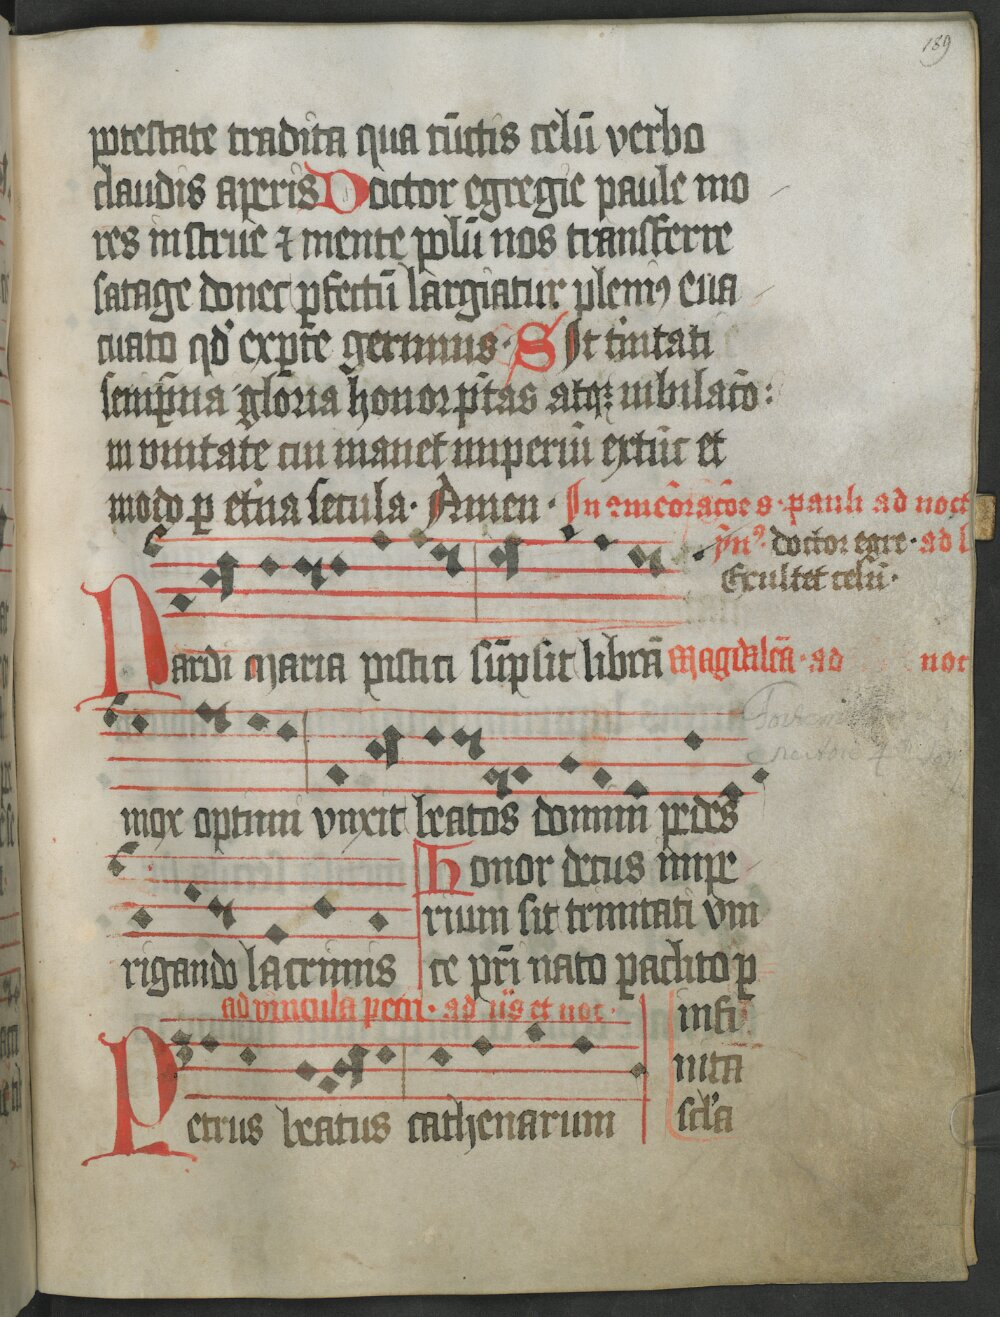 189
potestate tradita qua cūctis celū verbo
claudis aperis Doctor egregie paule mo
res instrue ⁊ mente polū nos transferre
satage donec ꝑfectū largiatur pleniꝰ eua
cuato qd' ex ꝑte gerimus · Sit t'nitati
semp̄na glōria honor p̄tas atqꝫ iubilac̄o :
in vnitate cui manet imperiū extūc et
modo ꝑ et'na secula · Amen · In ꝯmēoracōe s · pauli ad noct
ẏmꝰ · doctor egre · ad l
Exultet celū ·
Nardi maria pistici sūpsit librā Magdalēa · ad noc
mox optimi vnxit beatos domini pedes
rigando lacrimis
Honor decus impe
rium sit trinitati vni
ce pr̄i nato paclito ꝑ
infi
nita
sc'la
ad vincula petri · ad ẏs et noc ·
Petrus beatus cathenarum